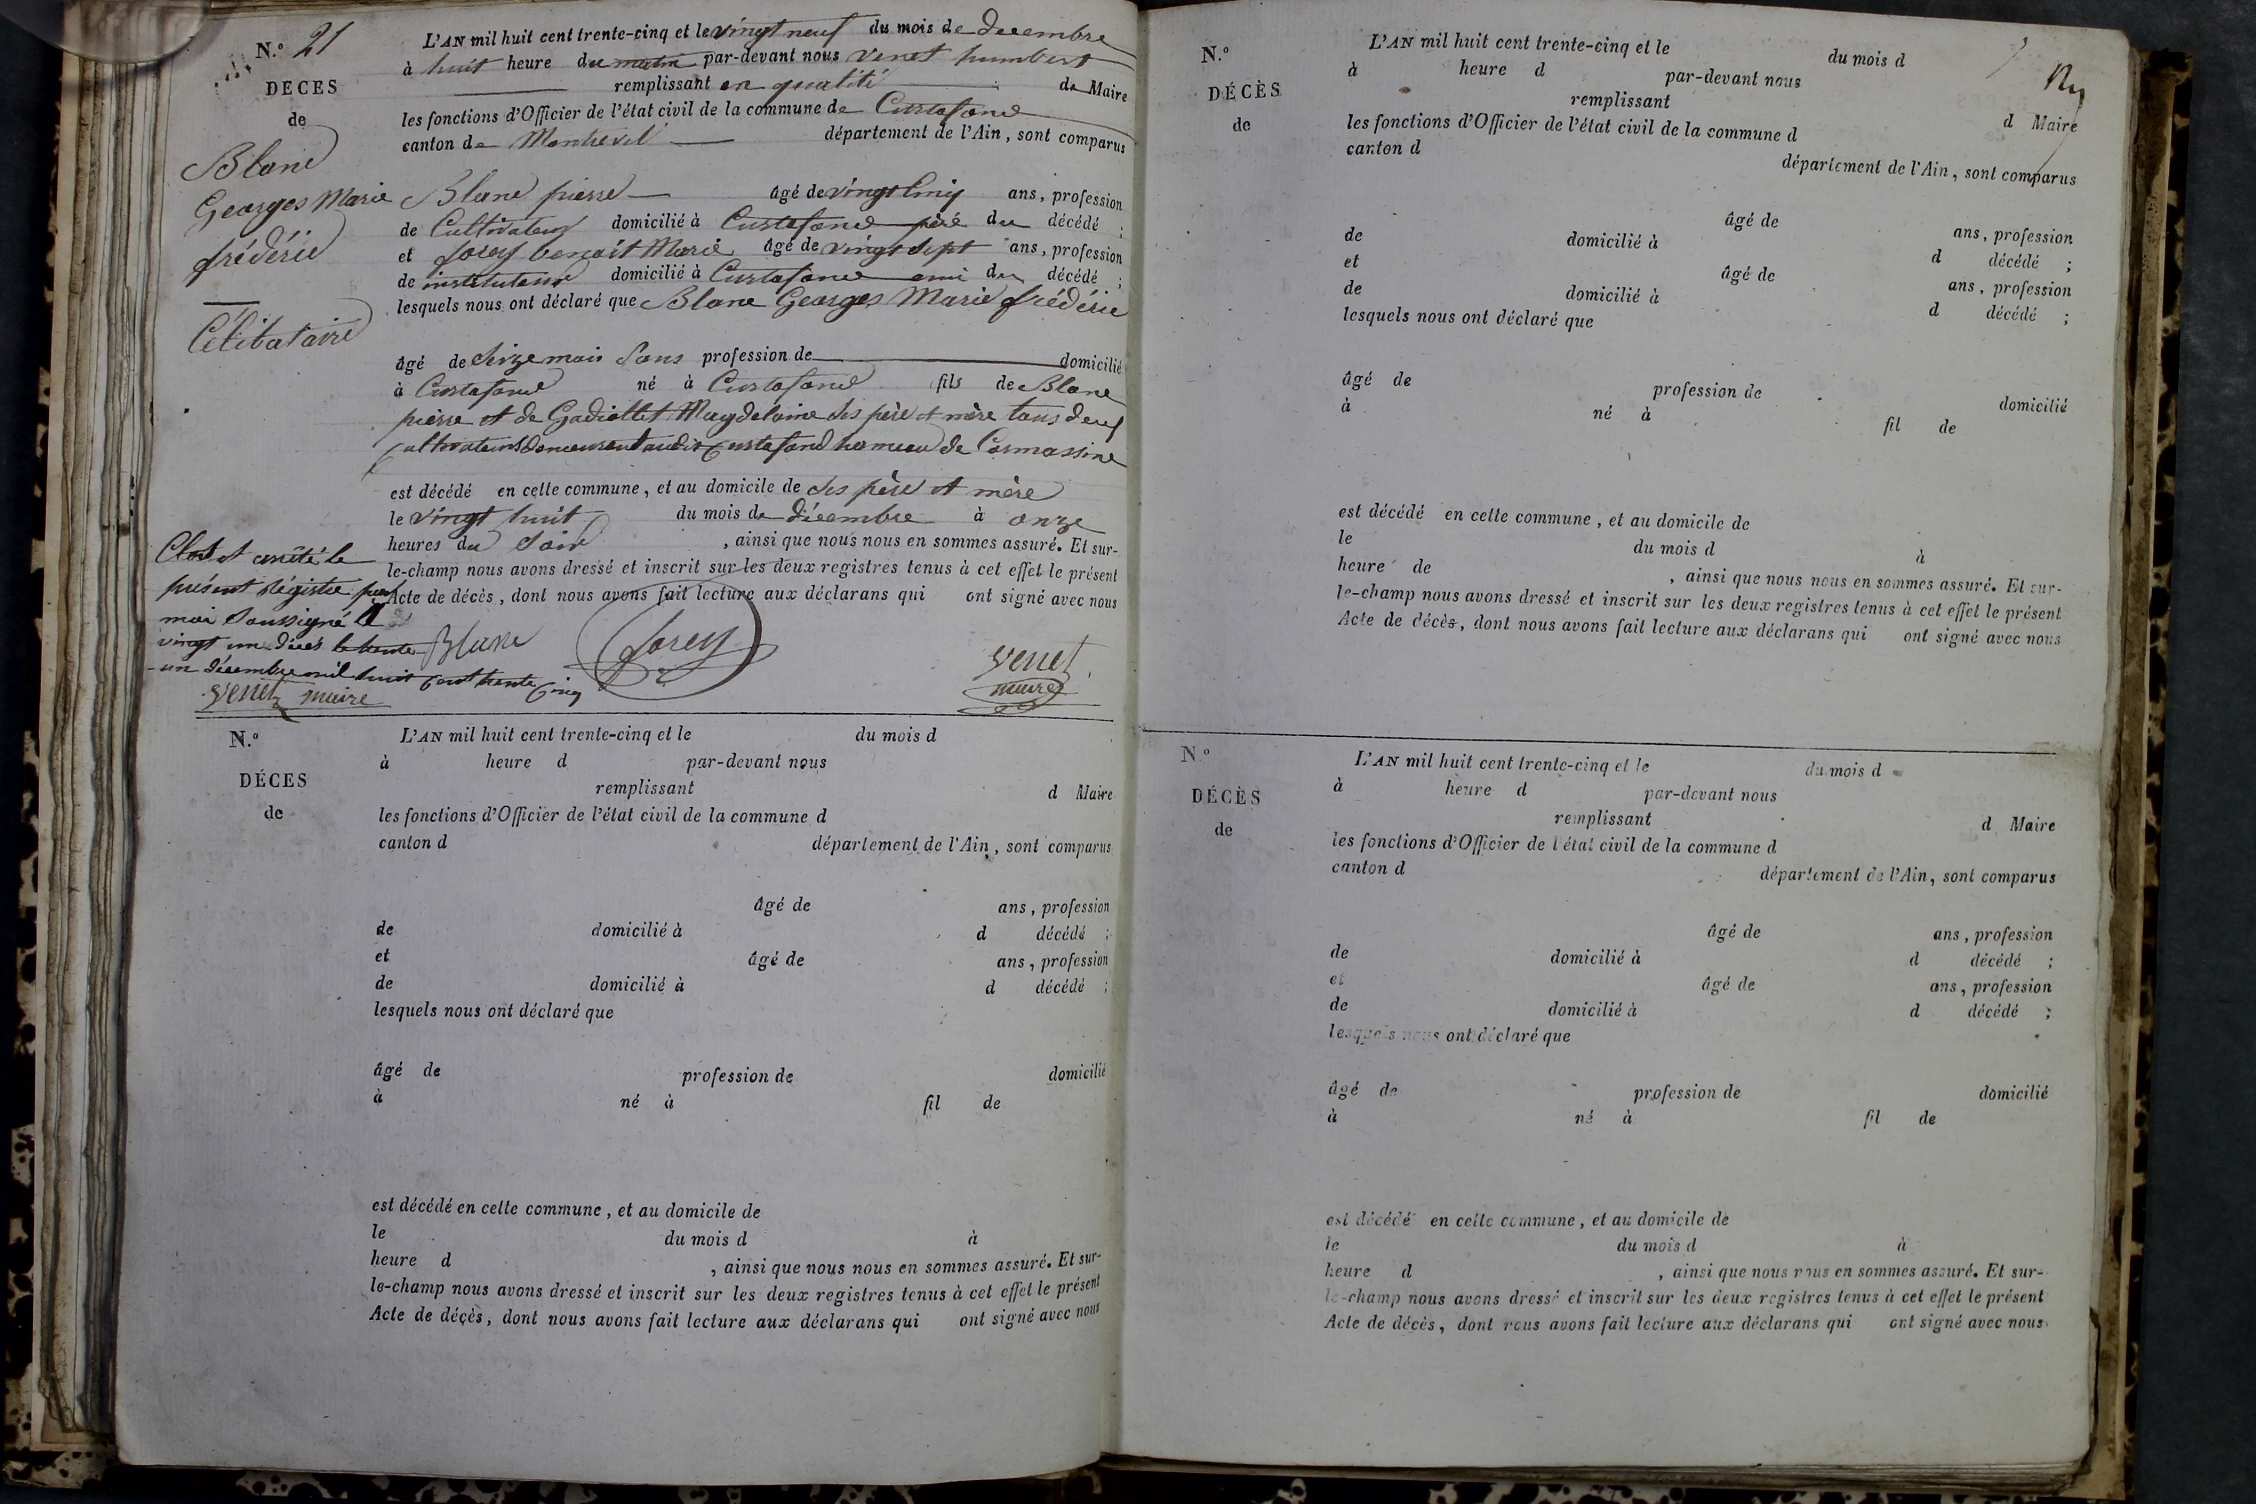 N.º 21
DÉCES
de
Blanc
Georges Marie
frédéric
Célibataire
L'AN mil huit cent trente-cinq et le vingt neuf du mois de decembre
à huit heure du matin par-devant nous venet humbert
remplissant en qualité de Maire
les fonctions d'Officier de l'état civil de la commune de Curtafond
canton de Montrevel département de l'Ain, sont comparus
Blanc pierre âgé de vingt cinq ans, profession
de Cultivateur domicilié à Curtafond père du décédé ;
et forey benoit Marie âgé de vingt sept ans, profession
de instituteur domicilié à Curtafond ami du décédé ;
lesquels nous ont déclaré que Blanc Georges Marie frédéric
âgé de seize mois Sans profession de domicilié
à Curtafond né à Curtafond fils de Blanc
pierre et de Gadiollet Magdelaine ses père et mère tous deux
cultivateurs demeurant audit Curtafond hameau de Cormassine
est décédé en cette commune, et au domicile de ses père et mère
le vingt huit du mois de décembre à onze
heures du Soir, ainsi que nous nous en sommes assuré. Et sur-
le-champ nous avons dressé et inscrit sur les deux registres tenus à cet effet le présent
Acte de décès, dont nous avons fait lecture aux déclarans qui ont signé avec nous
Blanc forey venet
maire
Clos et arrêté le
présent Régistre par
moi Soussigné à
vingt un décés le trente
un décembre mil huit cent trente Cinq
venet maire
N.º
DÉCES
de
L'AN mil huit cent trente-cinq et le du mois d
à heure d par-devant nous
remplissant d Maire
les fonctions d'Officier de l'état civil de la commune d
canton d département de l'Ain, sont comparus
âgé de ans, profession
de domicilié à d décédé ;
et âgé de ans, profession
de domicilié à d décédé ;
lesquels nous ont déclaré que
âgé de profession de domicilié
à né à fil de
est décédé en cette commune, et au domicile de
le du mois d à
heure d , ainsi que nous nous en sommes assuré. Et sur-
le-champ nous avons dressé et inscrit sur les deux registres tenus à cet effet le présent
Acte de décès, dont nous avons fait lecture aux déclarans qui ont signé avec nous
N.º
DÉCÈS
de
L'AN mil huit cent trente-cinq et le du mois d
à heure d par-devant nous
remplissant d Maire
les fonctions d'Officier de l'état civil de la commune d
canton d département de l'Ain, sont comparus
âgé de ans, profession
de domicilié à d décédé ;
et âgé de ans, profession
de domicilié à d décédé ;
lesquels nous ont déclaré que
âgé de profession de domicilié
à né à fil de
est décédé en cette commune, et au domicile de
le du mois d à
heure de , ainsi que nous nous en sommes assuré. Et sur-
le-champ nous avons dressé et inscrit sur les deux registres tenus à cet effet le présent
Acte de décès, dont nous avons fait lecture aux déclarans qui ont signé avec nous
N.º
DÉCÈS
de
L'AN mil huit cent trente-cinq et le du mois d
à heure d par-devant nous
remplissant d Maire
les fonctions d'Officier de l'état civil de la commune d
canton d département de l'Ain, sont comparus
âgé de ans, profession
de domicilié à d décédé ;
et âgé de ans, profession
de domicilié à d décédé ;
lesquels nous ont déclaré que
âgé de profession de domicilié
à né à fil de
est décédé en cette commune, et au domicile de
le du mois d à
heure d , ainsi que nous nous en sommes assuré. Et sur-
le-champ nous avons dressé et inscrit sur les deux registres tenus à cet effet le présent
Acte de décès, dont nous avons fait lecture aux déclarans qui ont signé avec nous